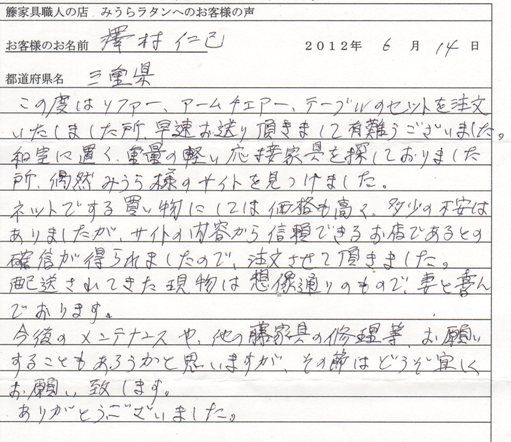 籐家具職人の店 みうらラタンへのお客様の声
お客様のお名前 澤村 仁己 2012年 6月 14日
都道府県名 三重県
この度はソファー、アームチェアー、テーブルのセットを注文
いたしました所、早速お送り頂きまして有難うございました。
和室に置く、重量の軽い応接家具を探しておりました
所、偶然みうら様のサイトを見つけました。
ネットでする買い物にしては価格も高く、多少の不安は
ありましたが、サイトの内容から信頼できるお店であるとの
確信が得られましたので、注文させて頂きました。
配送されてきた現物は想像通りのもので、妻と喜ん
でおります。
今後のメンテナンスや、他の藤家具の修理等、お願い
することもあろうかと思いますが、その節はどうぞ宜しく
お願い致します。
ありがとうございました。